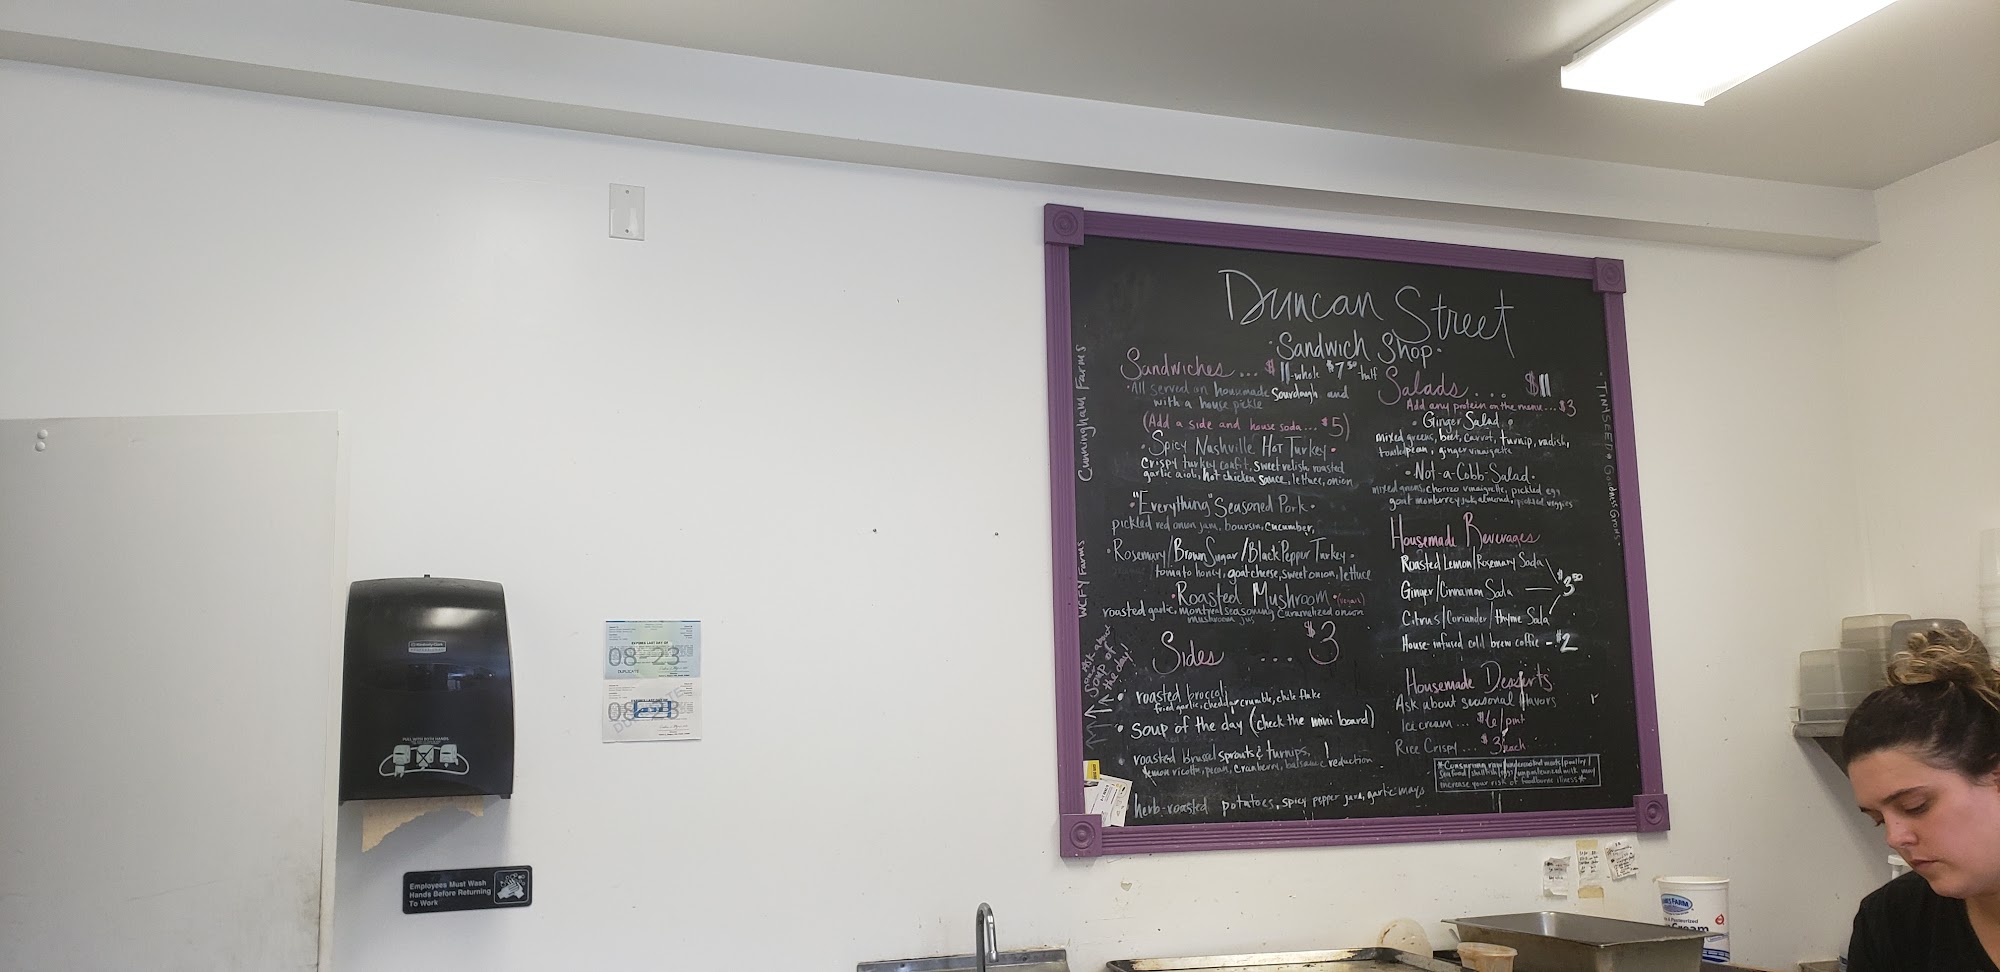 Duncan Street
·Sandwich Shop·
Sandwiches... $11-whole $7.50 half
·All served on housemade sourdough and
with a house pickle
(Add a side and house soda...$5)
·Spicy Nashville Hot Turkey·
crispy turkey confit, sweet relish, roasted
garlic aioli, hot chicken sauce, lettuce, onion
·"Everything" Seasoned Pork·
pickled red onion jam, boursin, cucumber,
·Rosemary/Brown Sugar/Black Pepper Turkey·
tomato honey, goat cheese, sweet onion, lettuce
·Roasted Mushroom·(vegan)
roasted garlic, montreal seasoning, caramelized onion
mushroom jus
Sides ... $3
roasted broccoli
fried garlic, cheddar crumble, chile flake
soup of the day (check the mini board)
roasted brussel sprouts & turnips,
lemon ricotta, pecan, cranberry, balsamic reduction
herb-roasted potatoes, spicy pepper jam, garlic mayo
Salads.... $11
Add any protein on the menu...$3
·Ginger Salad·
mixed greens, beet, carrot, turnip, radish,
ginger vinaigrette
·Not-a-Cobb-Salad·
mixed greens, chorizo vinaigrette, pickled egg
goat monterrey jack, almond, pickled veggies
Housemade Beverages
Roasted Lemon/Rosemary Soda
Ginger/Cinnamon Soda — $3.50
Citrus/Coriander/Thyme Soda
House-infused cold brew coffee - $2
Housemade Desserts
Ask about seasonal flavors
Ice cream... $6/pint
Rice Crispy... $3 each
*Consuming raw/undercooked meats/poultry/
seafood/shellfish/eggs/unpasteurized milk may
increase your risk of foodborne illness*
Cunningham Farms
WCFY Farms
ask about
soup of
the day!
·TINYSEED·GoodnessGrows·
EXPIRES LAST DAY OF
08-23
DUPLICATE
08-23
PULL WITH BOTH HANDS
Employees Must Wash
Hands Before Returning
To Work